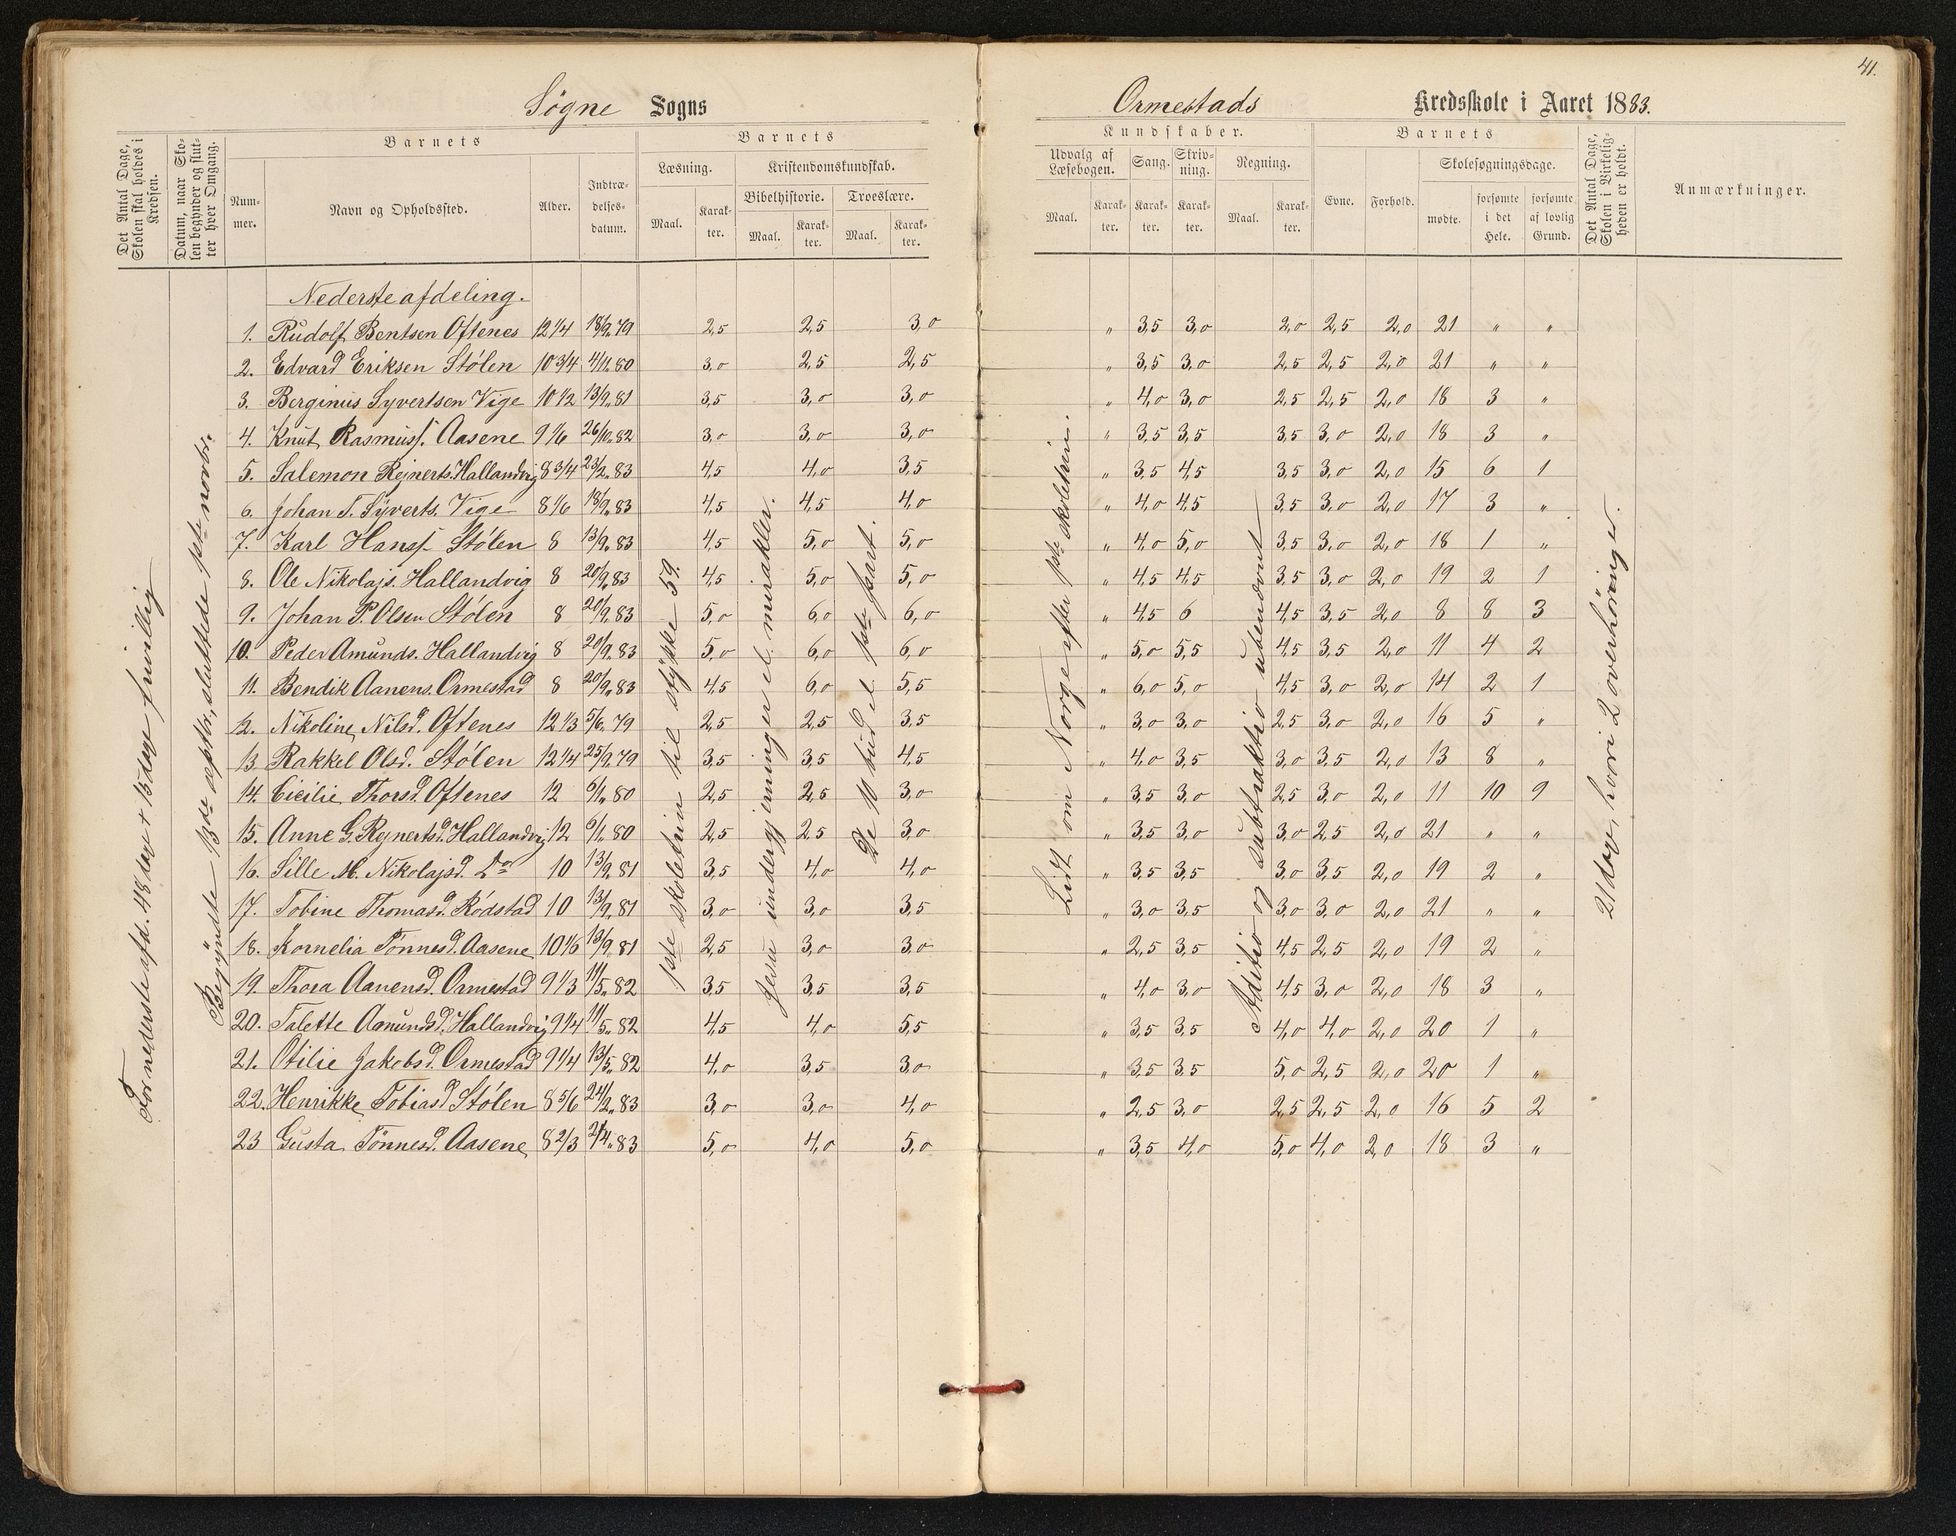 41.
Søgne Sogns Ormestads Kredsskole i Aaret 1883.
Det Antal Dage, Skolen skal holdes i Kredsen.
Datum, naar Skolen begynder og slutter hver Omgang.
Barnets
Nummer.
Navn og Opholdssted.
Alder.
Indtrædelsesdatum.
Barnets
Læsning.
Maal. Karakter.
Kristendomskundskab.
Bibelhistorie. Troeslære.
Maal. Karakter. Maal. Karakter.
Kundskaber.
Udvalg af Læsebogen. Sang. Skrivning. Regning.
Maal. Karakter. Karakter. Karakter. Maal. Karakter.
Barnets
Evne. Forhold. Skolesøgningsdage.
mødte. forsømte i det Hele. forsømte af lovlig Grund.
Det Antal Dage, Skolen i Virkeligheden er holdt.
Anmærkninger.
For nederste afd. 48 dage + 15 dage frivillig
Begyndte 13de septbr., sluttede 1ste novbr.
1ste skoletrin til stykke 59.
Jesu undergjerninger el. mirakler.
De 10 bud el. 1ste part.
Lidt om Norge efter 1ste skoletrin.
Aditio og subtraktio ubenævnt
21 dage, hvori 2 overhøringer.
Nederste afdeling.
1. Rudolf Bentsen Oftenes 12 1/4 18/9.79 2,5 2,5 3,0 „ 3,5 3,0 2,0 2,5 2,0 21 „ „
2. Edvard Eriksen Stølen 10 3/4 4/11.80 3,0 2,5 2,5 „ 3,5 3,0 2,5 2,5 2,0 21 „ „
3. Berginius Syvertsen Vige 10 1/2 13/9.81 3,5 3,0 3,0 „ 4,0 3,0 2,5 2,5 2,0 18 3 „
4. Knut Rasmuss. Aasene 9 1/6 26/10.82 3,0 3,0 3,0 „ 3,5 3,5 3,5 3,0 2,0 18 3 „
5. Salemon Rejnerts. Hallandvig 8 3/4 23/2.83 4,5 4,0 3,5 „ 3,5 4,5 3,5 3,0 2,0 15 6 1
6. Johan T. Syverts. Vige 8 1/6 18/9.83 4,5 4,5 4,0 „ 4,0 4,5 3,5 3,0 2,0 17 3 „
7. Karl Hanss. Stølen 8 13/9.83 4,5 5,0 5,0 „ 4,0 5,0 3,5 3,0 2,0 18 1 „
8. Ole Nikolajs. Hallandvig 8 20/9.83 4,5 5,0 5,0 „ 4,5 4,5 3,5 3,0 2,0 19 2 1
9. Johan P. Olsen Stølen 8 20/9.83 5,0 6,0 6,0 „ 4,5 6 4,5 3,5 2,0 8 8 3
10. Peder Amunds. Hallandvig 8 20/9.83 5,0 6,0 6,0 „ 5,0 5,5 4,5 3,5 2,0 11 4 2
11. Bendik Aanens. Ormestad 8 20/9.83 4,5 6,0 5,5 „ 6,0 5,0 4,5 3,0 2,0 14 2 1
12. Nikoline Nilsd. Oftenes 12 1/3 5/6.79 2,5 2,5 3,5 „ 3,0 3,0 2,5 3,0 2,0 16 5 „
13. Rakkel Olsd. Stølen 12 1/4 25/9.79 3,5 3,5 4,5 „ 4,0 3,5 3,0 3,5 2,0 13 8 „
14. Cicilie Thorsd. Oftenes 12 6/11.80 2,5 2,5 3,0 „ 3,5 3,0 2,5 3,0 2,0 11 10 9
15. Anne G. Rejnertsd. Hallandvig 12 6/11.80 2,5 2,5 3,0 „ 3,5 3,0 3,0 2,5 2,0 21 „ „
16. Sille M. Nikolajsd. Do 10 13/9.81 3,5 4,0 4,0 „ 3,5 3,5 3,0 3,5 2,0 19 2 „
17. Tobine Thomasd. Rødstad 10 13/9.81 3,0 3,0 3,5 „ 3,0 3,5 3,0 3,0 2,0 21 „ „
18. Kornelia Tønnesd. Aasene 10 1/6 13/9.81 2,5 3,0 3,0 „ 2,5 3,5 4,5 2,5 2,0 19 2 „
19. Thora Aanensd. Ormestad 9 1/3 11/5.82 3,5 3,5 3,5 „ 4,0 3,0 4,5 3,0 2,0 18 3 „
20. Talette Amundsd. Hallandvig 9 1/4 11/5.82 4,5 4,0 5,5 „ 3,5 3,5 4,0 4,0 2,0 20 1 „
21. Otilie Jakobsd. Ormestad 9 1/4 13/5.82 4,0 3,5 3,0 „ 3,5 3,5 5,0 2,5 2,0 20 1 „
22. Henrikke Tobiasd. Stølen 8 5/6 24/2.83 3,0 3,0 4,0 „ 2,5 3,0 2,5 2,5 2,0 16 5 2
23 Gusta Tønnesd. Aasene 8 2/3 2/4.83 5,0 4,0 5,0 „ 3,5 4,0 5,0 4,0 2,0 18 3 „